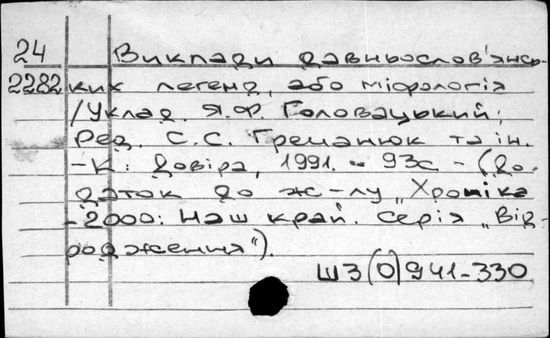 24 Виклади давньослов'янсь-
2282 ких легенд, або міфологія
/Уклад. Я.Ф. Головацький;
Ред. С.С. Гречанюк та ін.
-К.: Довіра, 1991. - 93с - (До-
даток до ж-лу „Хроніка
-2000: Наш край. Серія „Від-
родження").
ШЗ(0)941-330